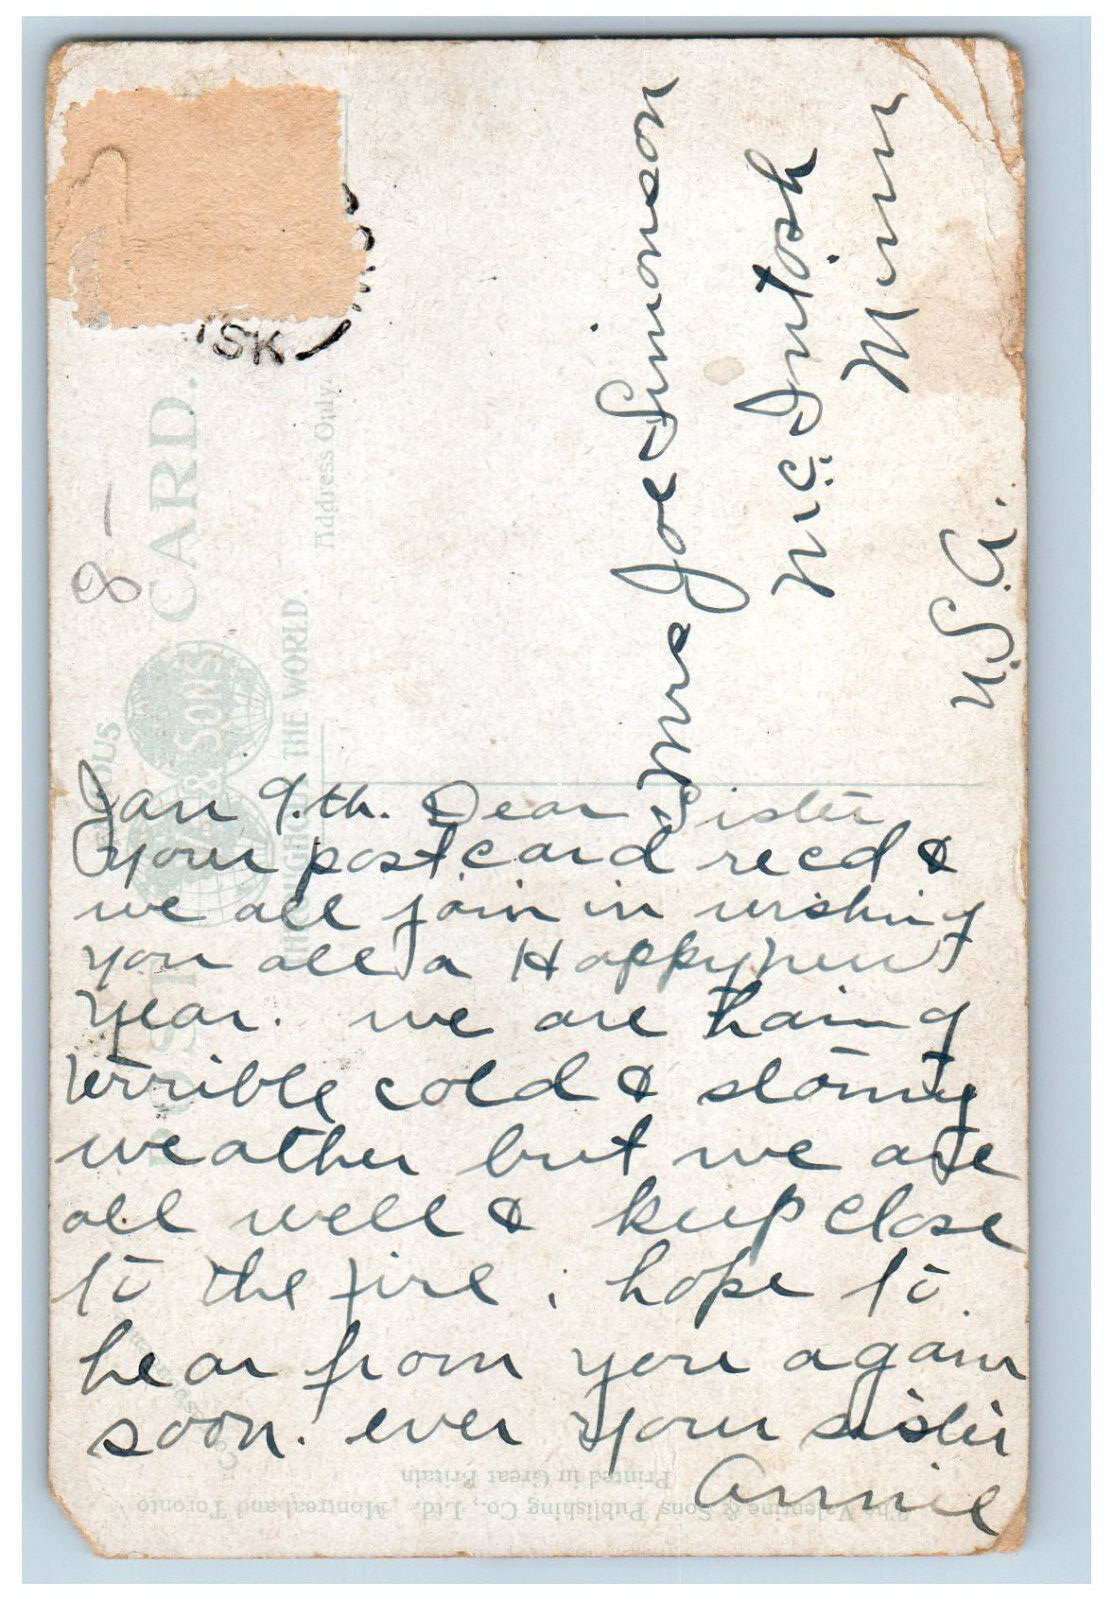 Jan 9.th. Dear Sister
your postcard recd &
we all join in wishing
you all a Happy new
Year. we are haing
terrible cold & stormy
weather but we are
all well & keep close
to the fire. hope to
hear from you again
soon. ever your sister
Annie
Mrs Joe Simonson
Mc. Intosh
Minn
U.S.A.
8-
POST CARD.
& SONS
THROUGHOUT THE WORLD.
Address Only.
SK
The Valentine & Sons Publishing Co., Ltd., Montreal and Toronto
Printed in Great Britain